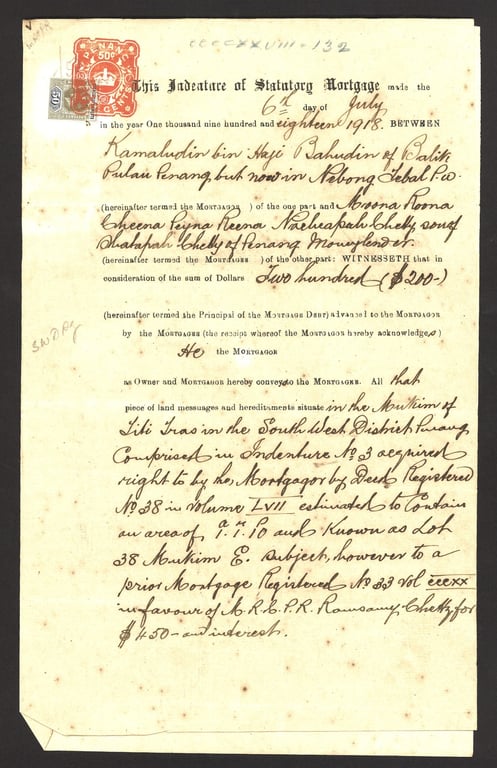 CCCCXXVIII - 132
PENANG
50c
CENTS
This Indenture of Statutory Mortgage made the
6th day of July
in the year One thousand nine hundred and eighteen 1918. BETWEEN
Kamaludin bin Haji Bahudin of Balik
Pulau Penang, but now in Nebong Tebal P.W.
(hereinafter termed the MORTGAGOR ) of the one part and Moona Roona
Cheena Peyna Reena Nacheapah Chetty, son of
Shatapah Chetty of Penang Moneylender.
(hereinafter termed the MORTGAGEE ) of the other part: WITNESSETH that in
consideration of the sum of Dollars Two hundred ($200-)
(hereinafter termed the Principal of the MORTGAGE DEBT) advanced to the MORTGAGOR
by the MORTGAGEE (the receipt whereof the MORTGAGOR hereby acknowledges)
He the MORTGAGOR
as Owner and MORTGAGOR hereby conveys to the MORTGAGEE. All that
piece of land messuages and hereditaments situate in the Mukim of
Titi Tras in the South West District Penang
Comprised in Indenture No 3 acquired
right to by he Mortgagor by Deed Registered
No 38 in Volume LVII estimated to Contain
an area of 1a. 1r. 10p and Known as Lot
38 Mukim E. subject, however to a
prior Mortgage Registered No 33 Vol CCCXX
in favour of M.R.C.P.R. Ramsamy Chetty for
$450- and interest.